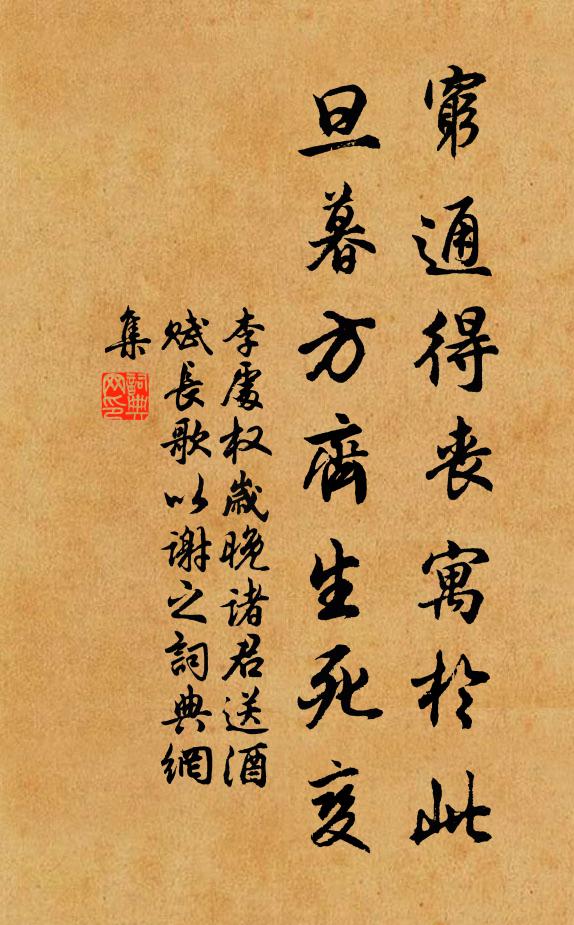 窮通得丧寓於此
旦暮方齊生死变
李處权歲晚諸君送酒
赋長歌以謝之詞典網
集
詞典
网印